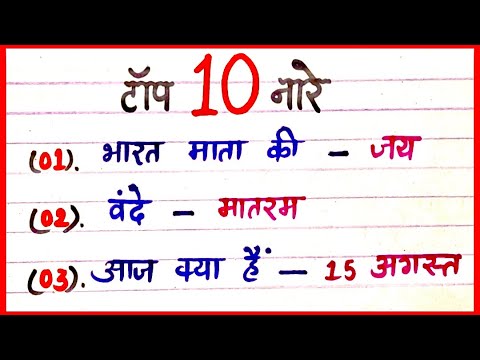 टॉप 10 नारे
(01). भारत माता की – जय
(02). वंदे – मातरम
(03). आज क्या हैं – 15 अगस्त